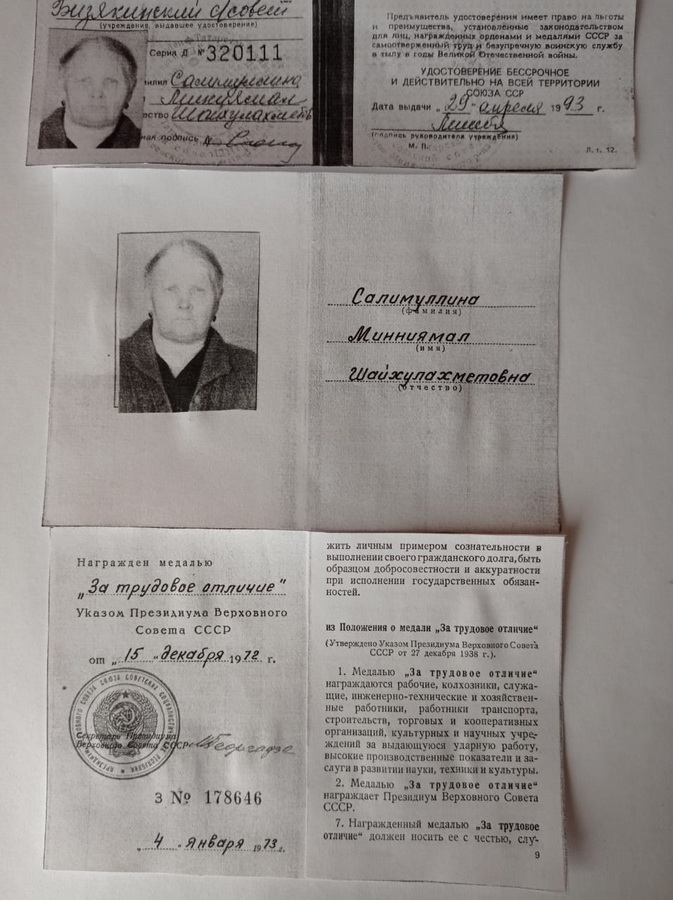 Бизякинский с/совет
(учреждения, выдавшее удостоверение)
Серия Д № 320111
Салимуллина
Миниямал
Шайхулахметов
ная подпись
Предъявитель удостоверения имеет право на льготы
и преимущества, установленные законодательством
для лиц, награжденных орденами и медалями СССР за
самоотверженный труд и безупречную воинскую службу
в тылу в годы Великой Отечественной войны.
УДОСТОВЕРЕНИЕ БЕССРОЧНОЕ
И ДЕЙСТВИТЕЛЬНО НА ВСЕЙ ТЕРРИТОРИИ
СОЮЗА ССР
Дата выдачи „29" апреля 1993 г.
(подпись руководителя учреждения)
М. П.
Л. т. 12.
Салимуллина
(фамилия)
Минниямал
(имя)
Шайхулахметовна
(отчество)
Награжден медалью
„За трудовое отличие"
Указом Президиума Верховного
Совета СССР
от „15" декабря 1972 г.
Секретарь Президиума
Верховного Совета СССР
З № 178646
„4" января 1973 г.
жить личным примером сознательности в
выполнении своего гражданского долга, быть
образцом добросовестности и аккуратности
при исполнении государственных обязан-
ностей.
из Положения о медали „За трудовое отличие"
(Утверждено Указом Президиума Верховного Совета
СССР от 27 декабря 1938 г.).
1. Медалью „За трудовое отличие"
награждаются рабочие, колхозники, служа-
щие, инженерно-технические и хозяйствен-
ные работники, работники транспорта,
строительств, торговых и кооперативных
организаций, культурных и научных учре-
ждений за выдающуюся ударную работу,
высокие производственные показатели и за-
слуги в развитии науки, техники и культуры.
2. Медалью „За трудовое отличие"
награждает Президиум Верховного Совета
СССР.
7. Награжденный медалью „За трудовое
отличие" должен носить ее с честью, слу-
9